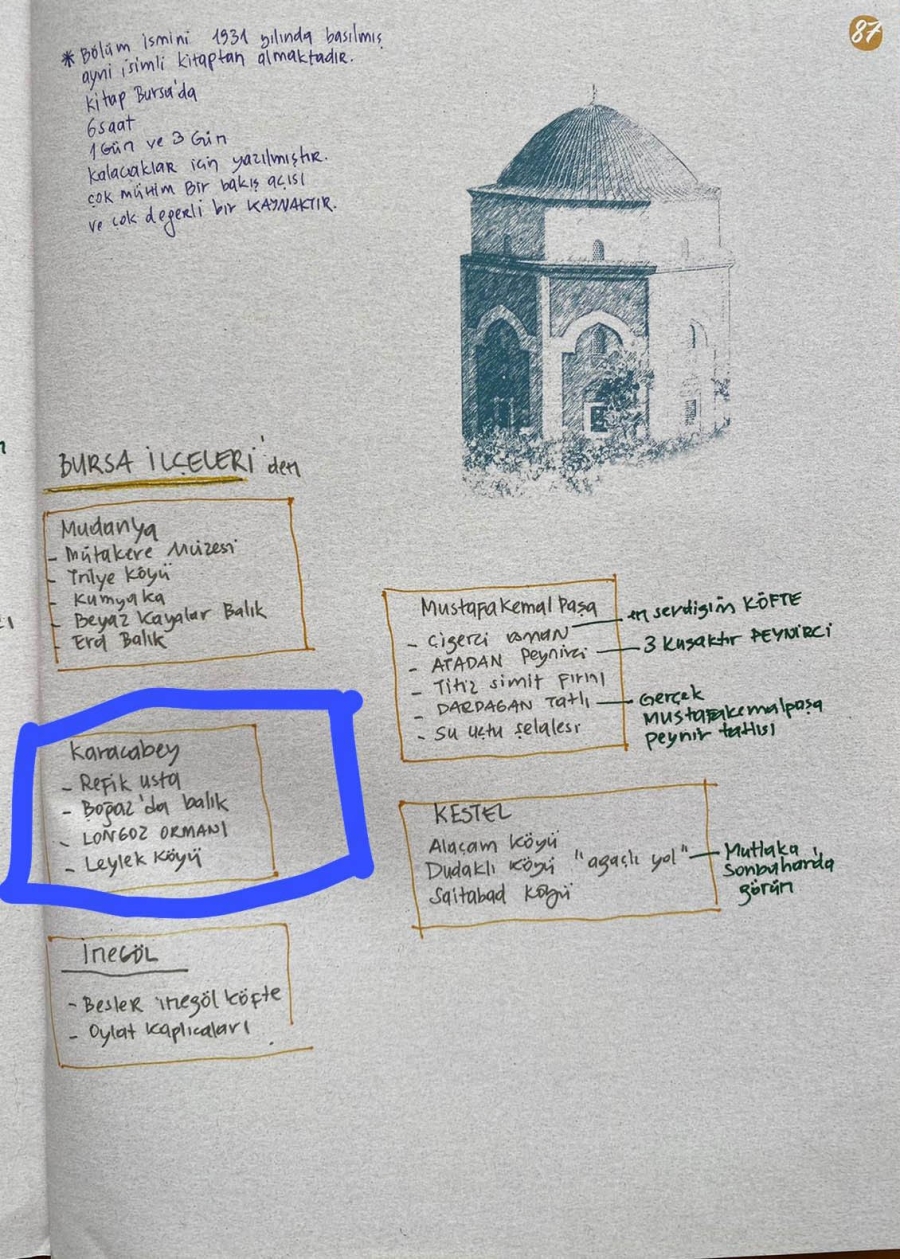 87
* Bölüm ismini 1931 yılında basılmış
ayni isimli kitaptan almaktadır.
kitap Bursa'da
6 saat
1 Gün ve 3 Gün
kalacaklar için yazılmıştır.
çok mühim Bir bakış açısı
ve çok değerli bir KAYNAKTIR.
BURSA İLÇELERİ'den
Mudanya
- Mütakere Müzesi
- Trilye Köyü
- Kumyaka
- Beyaz Kayalar Balık
- Erol Balık
Mustafa Kemal Paşa
- Ciğerci osman — en sevdiğim KÖFTE
- ATADAN Peynirci — 3 Kuşaktır PEYNİRCİ
- Titiz simit Fırını
- DARDAĞAN Tatlı — Gerçek
Mustafakemalpaşa
peynir tatlısı
- Su uctu Şelalesi
Karacabey
- Refik usta
- Boğaz'da balık
- LONGOZ ORMANI
- Leylek Köyü
KESTEL
Alaçam Köyü
Dudaklı Köyü "agaçlı yol" — Mutlaka
Sonbaharda
görün
Saitabad Köyü
İneGÖL
- Besler inegöl köfte
- Oylat Kaplıcaları